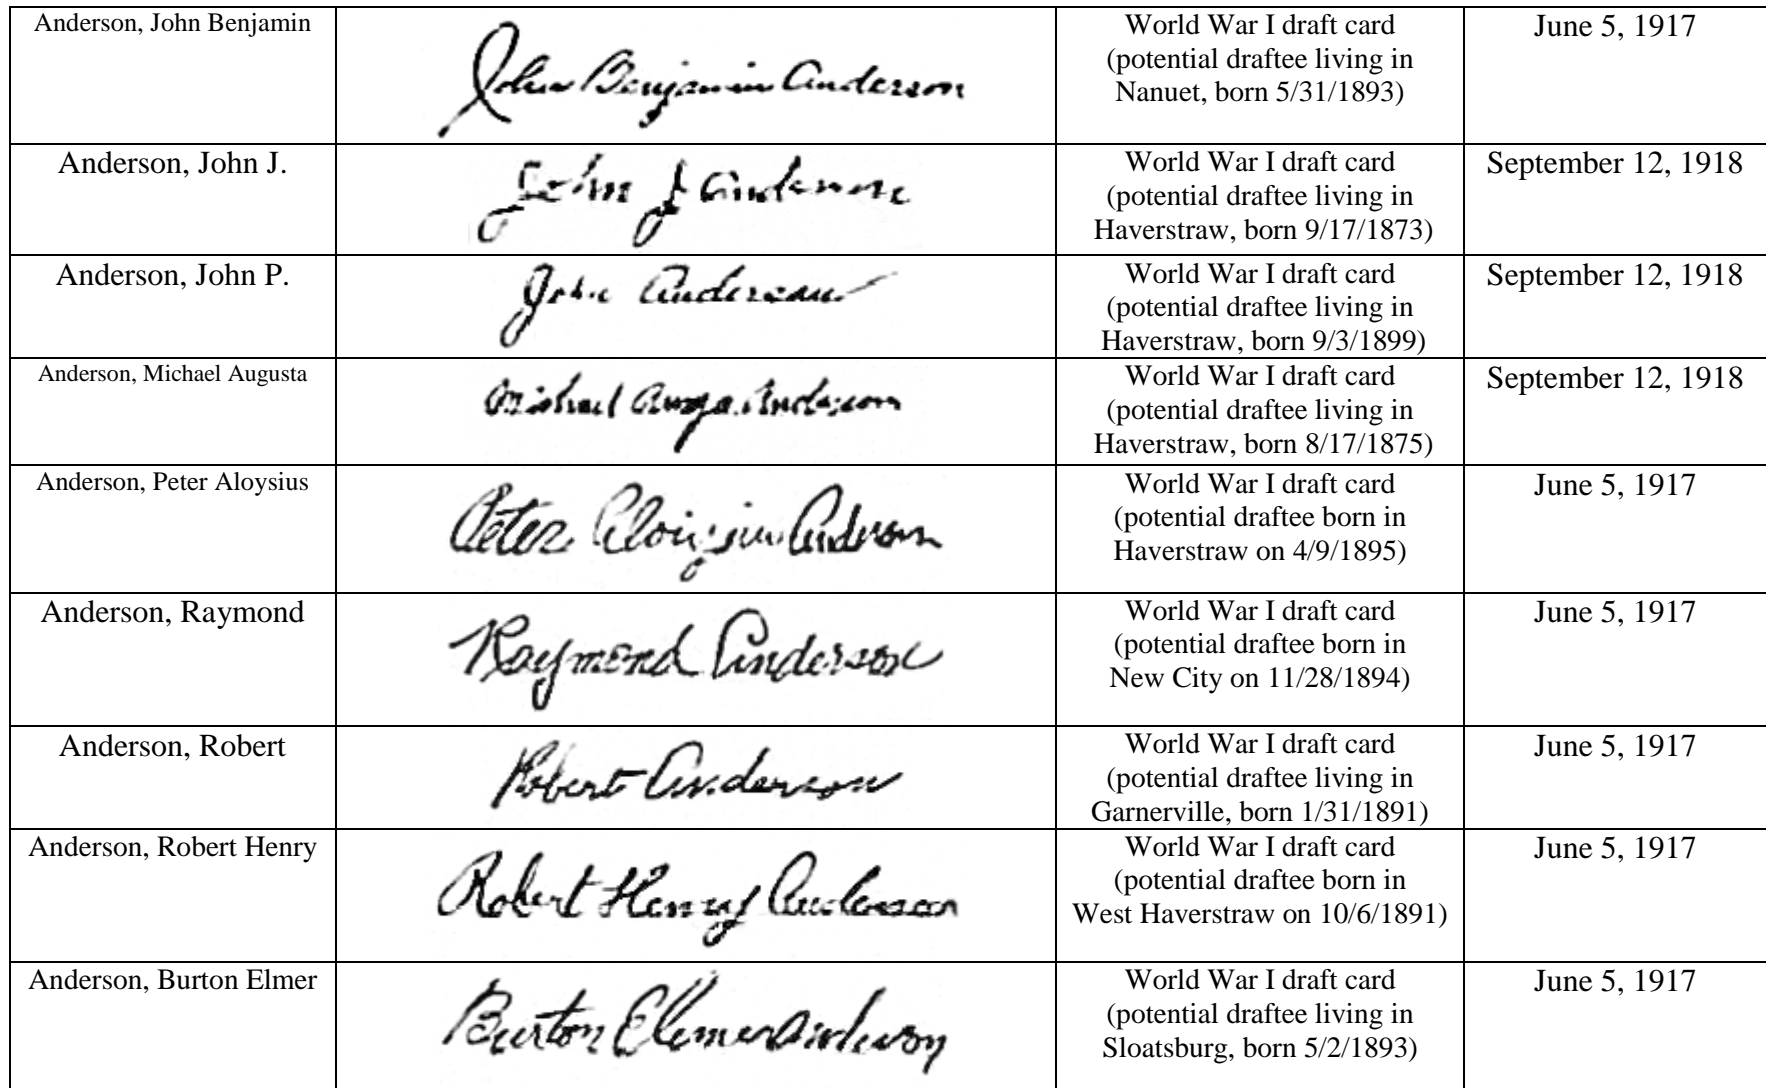 Anderson, John Benjamin
John Benjamin Anderson
World War I draft card
(potential draftee living in
Nanuet, born 5/31/1893)
June 5, 1917
Anderson, John J.
John J Anderson
World War I draft card
(potential draftee living in
Haverstraw, born 9/17/1873)
September 12, 1918
Anderson, John P.
John Anderson
World War I draft card
(potential draftee living in
Haverstraw, born 9/3/1899)
September 12, 1918
Anderson, Michael Augusta
Michael Anderson
World War I draft card
(potential draftee living in
Haverstraw, born 8/17/1875)
September 12, 1918
Anderson, Peter Aloysius
Peter Anderson
World War I draft card
(potential draftee born in
Haverstraw on 4/9/1895)
June 5, 1917
Anderson, Raymond
Raymond Anderson
World War I draft card
(potential draftee born in
New City on 11/28/1894)
June 5, 1917
Anderson, Robert
Robert Anderson
World War I draft card
(potential draftee living in
Garnerville, born 1/31/1891)
June 5, 1917
Anderson, Robert Henry
Robert Henry Anderson
World War I draft card
(potential draftee born in
West Haverstraw on 10/6/1891)
June 5, 1917
Anderson, Burton Elmer
Burton Elemer Anderson
World War I draft card
(potential draftee living in
Sloatsburg, born 5/2/1893)
June 5, 1917